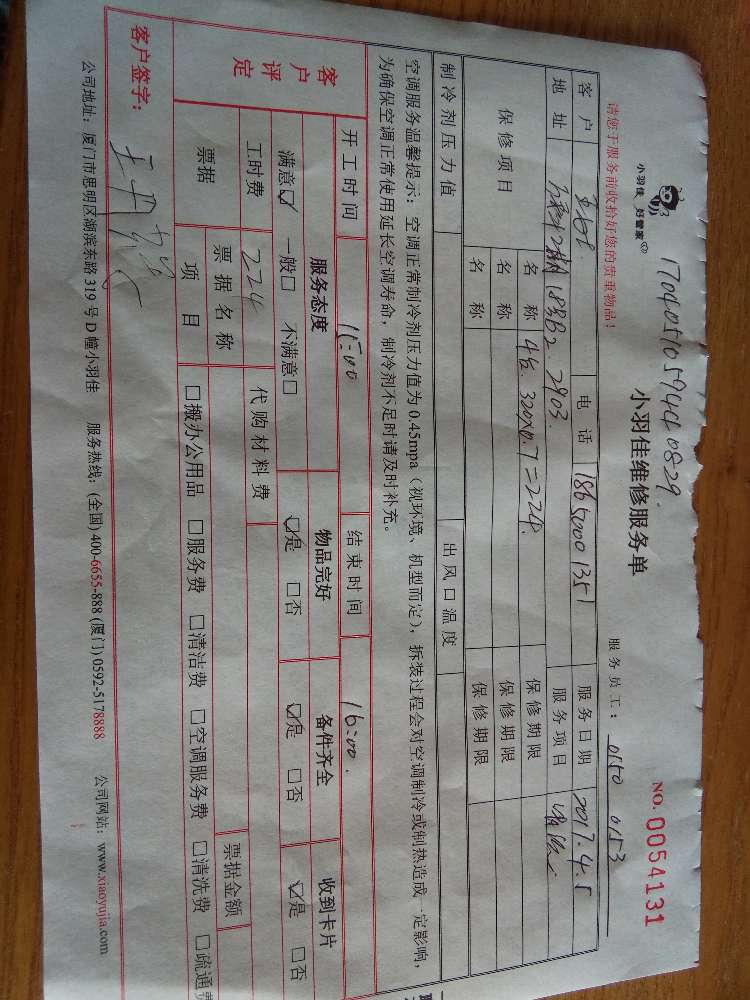 小羽佳 好管家
17040510594440829.
小羽佳维修服务单
NO. 0054131
请您于服务前收拾好您的贵重物品！
服务员工： 0150 0153
客户 电话 18650001351 服务日期 2017.4.5
地址 183B2 2903. 服务项目
保修项目 名称 4台. 320×0.7=224. 保修期限
名称 保修期限
名称 保修期限
制冷剂压力值 出风口温度
空调服务温馨提示：空调正常制冷剂压力值为0.45mpa（视环境、机型而定），拆装过程会对空调制冷或制热造成一定影响，
为确保空调正常使用延长空调寿命，制冷剂不足时请及时补充。
开工时间 11:00 结束时间 16:00.
客户评定 服务态度 物品完好 备件齐全 收到卡片
满意☑ 一般□ 不满意□ ☑是 □否 ☑是 □否 ☑是 □否
工时费 224 代购材料费 票据金额
票据 票据名称
项目 □搬办公用品 □服务费 □清洁费 □空调服务费 □清洗费 □疏通费
客户签字：
公司地址：厦门市思明区湖滨东路319号D幢小羽佳 服务热线：(全国)400-6655-888 (厦门)0592-5178888 公司网站：www.xiaoyujia.com